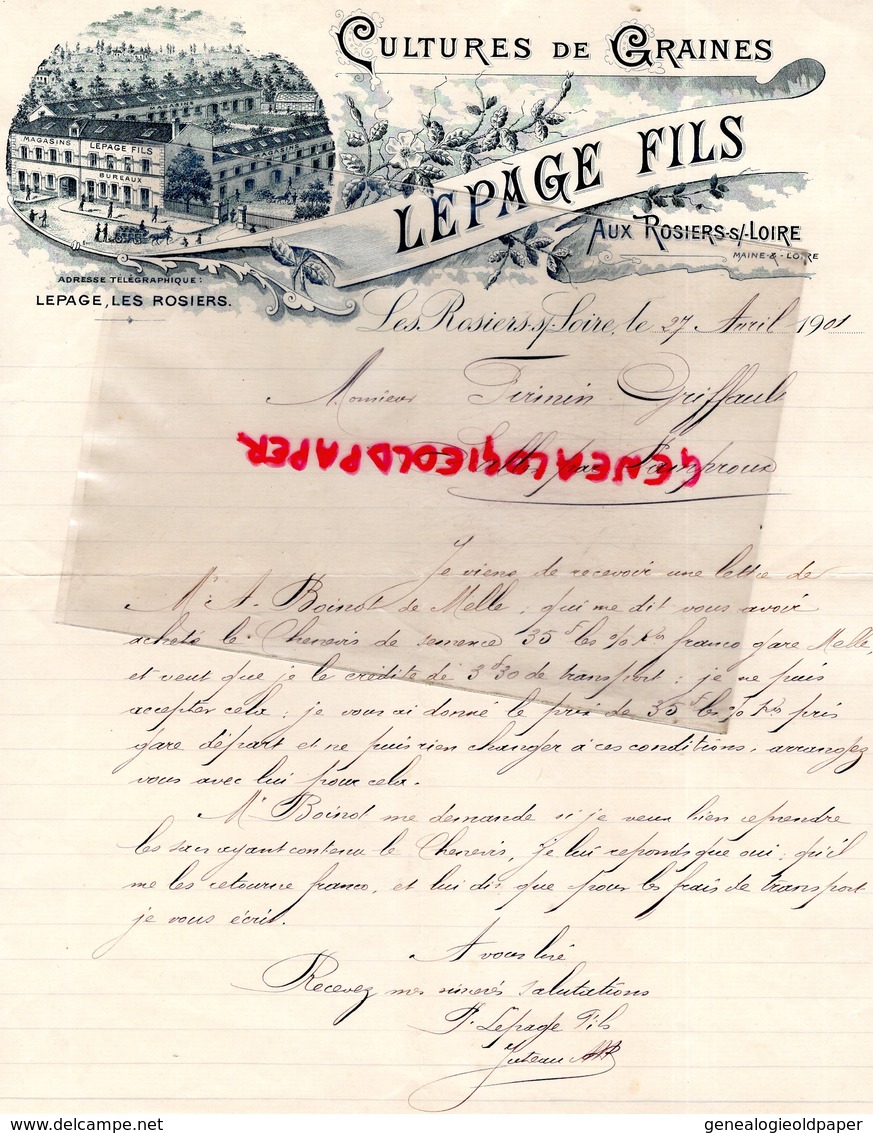 CULTURES DE GRAINES
MAGASINS
MAGASINS
LEPAGE FILS
MAGASINS
BUREAUX
LEPAGE FILS
AUX ROSIERS-S/-LOIRE
MAINE-&-LOIRE
ADRESSE TÉLÉGRAPHIQUE:
LEPAGE, LES ROSIERS.
Les Rosiers-s/-Loire, le 27 Avril 1901
Monsieur Firmin Griffault
par Lamproux
GENEALOGIEOLDPAPER
Je viens de recevoir une lettre de
Mr A. Boinot de Melle, qui me dit vous avoir
acheté le Chenevis de semence 35 f les % kos franco gare Melle,
et veut que je le crédite de 3f30 de transport; je ne puis
accepter cela; je vous ai donné le prix de 35 f les % kos pris
gare départ et ne puis rien changer à ces conditions, arrangez
vous avec lui pour cela.
Mr Boinot me demande si je veux bien reprendre
les sacs ayant contenu le Chenevis, je lui reponds que oui; qu'il
me les retourne franco, et lui dit que pour les frais de transport
je vous écris.
A vous lire
Recevez mes sincères salutations
P. Lepage Fils
Juteau
genealogieoldpaper